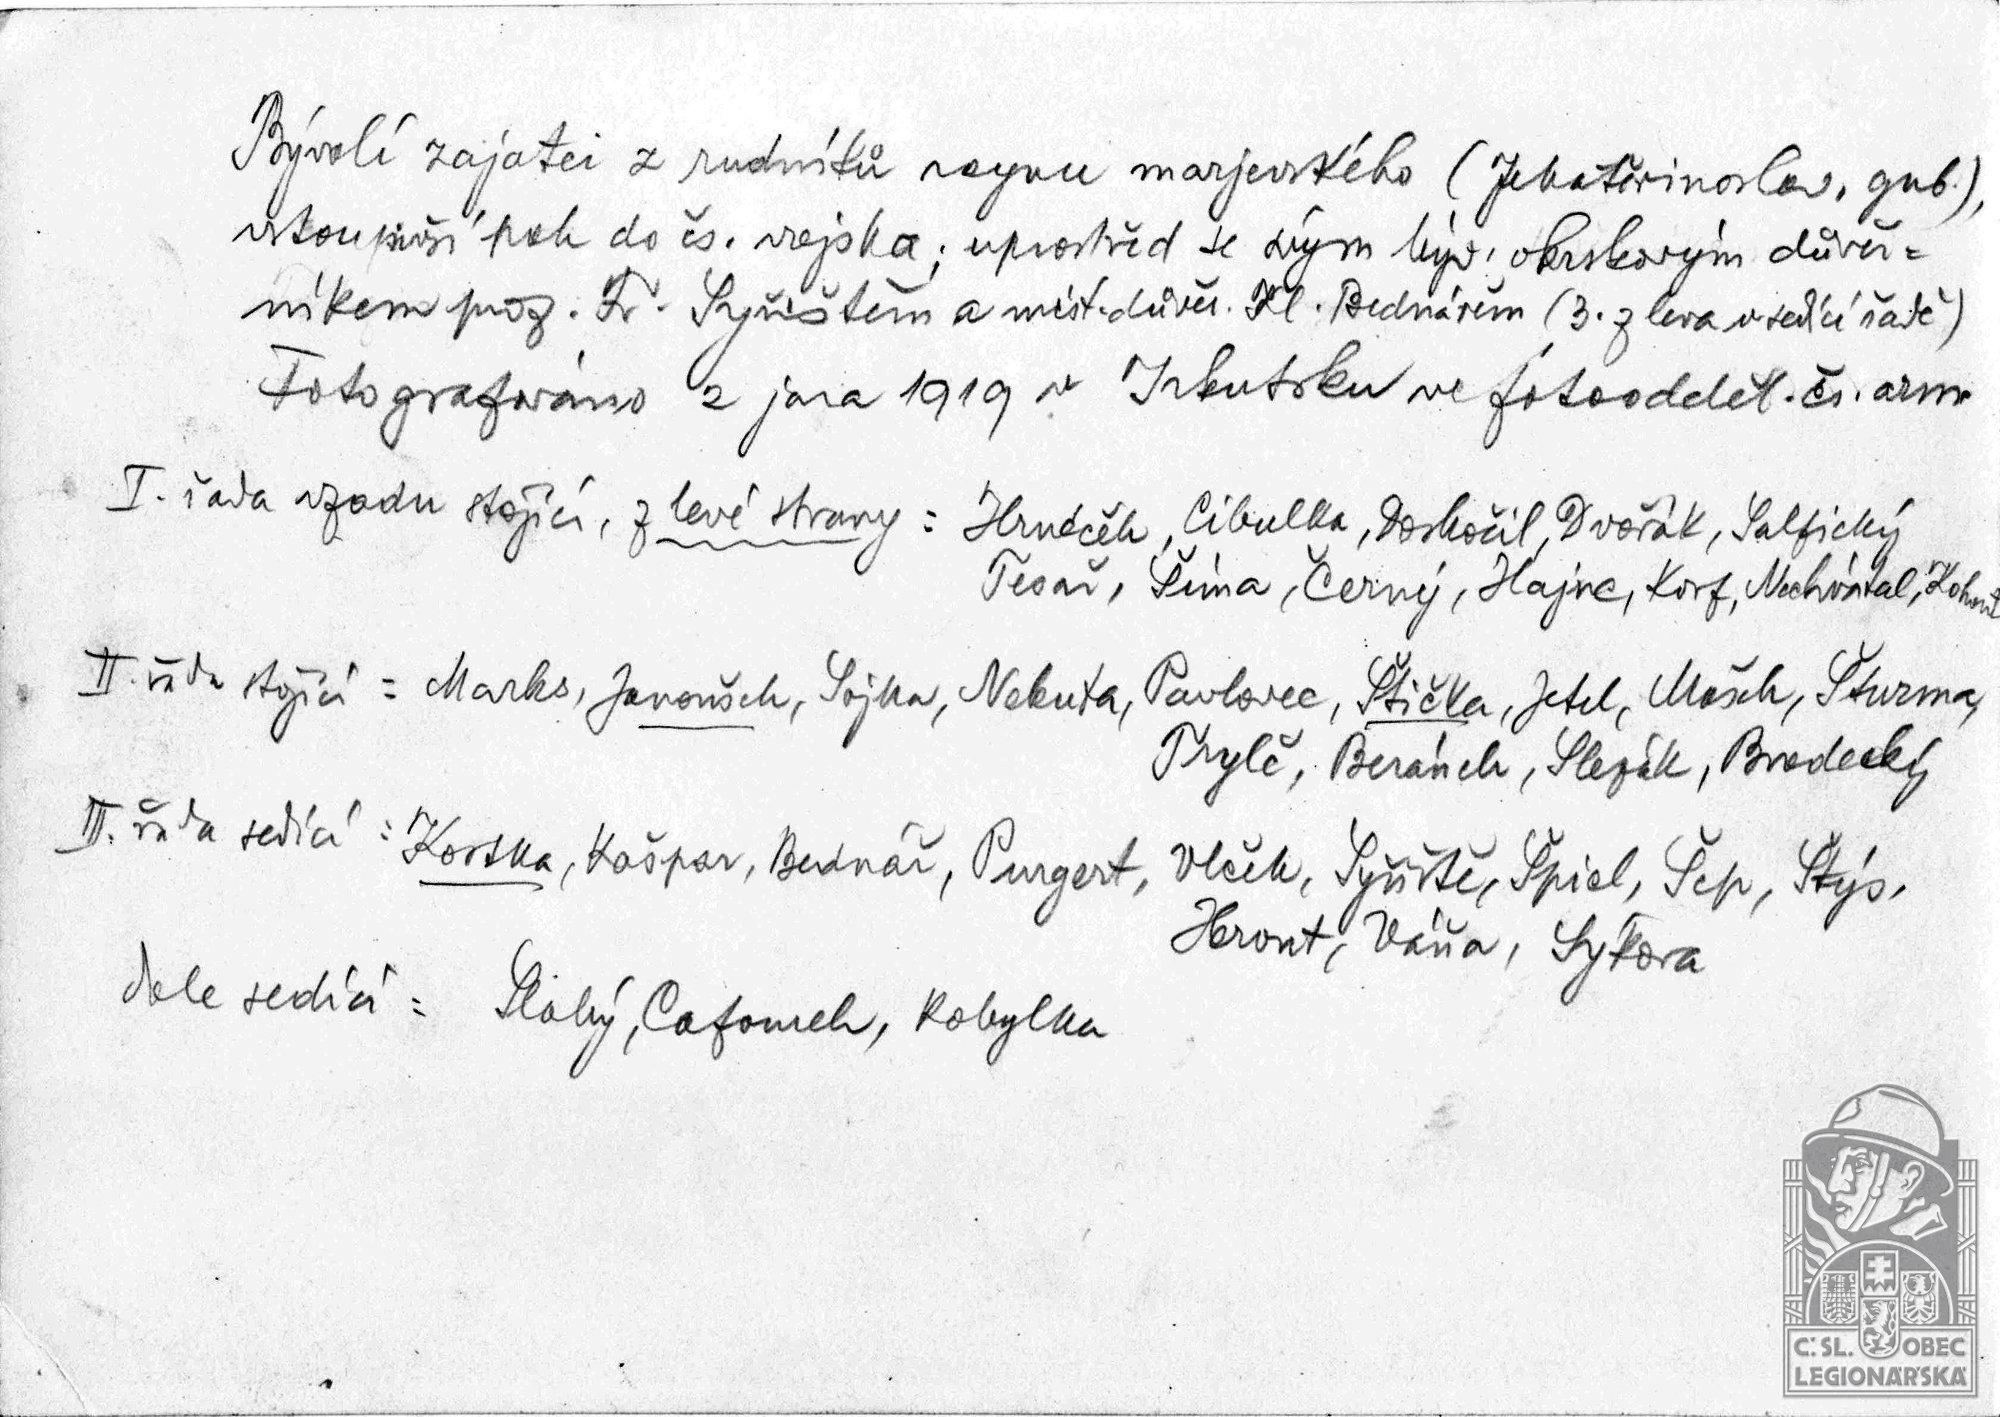 Bývalí zajatci z rudníků rayonu marjevského (Jekatěrinoslav. gub.),
vstoupivší pak do čs. vojska; uprostřed se svým býv. okrskovým důvěr=
níkem proz. Fr. Syřištěm a míst. důvěr. Kl. Bednářem (3. z leva v sedící řadě)
Fotografováno z jara 1919 v Irkutsku ve fotoodděl. čs. arm.
I. řada vzadu stojící, z levé strany: Hrneček, Cibulka, Doskočil, Dvořák, Salfický
Tesař, Šíma, Černý, Hajne, Korf, Nechvátal, Kohout
II. řada stojící = Marks, Janoušek, Sojka, Nekuta, Pavlovec, Štička, Jetel, Mašek, Šturma,
Trylč, Beránek, Slezák, Brodecký
III. řada sedící: Kostka, Kašpar, Bednář, Purgert, Vlček, Syřiště, Špiel, Šep, Stýs,
Hront, Váňa, Sýkora
dole sedící = Slabý, Cafourek, Kobylka
Č.SL. OBEC
LEGIONÁŘSKÁ